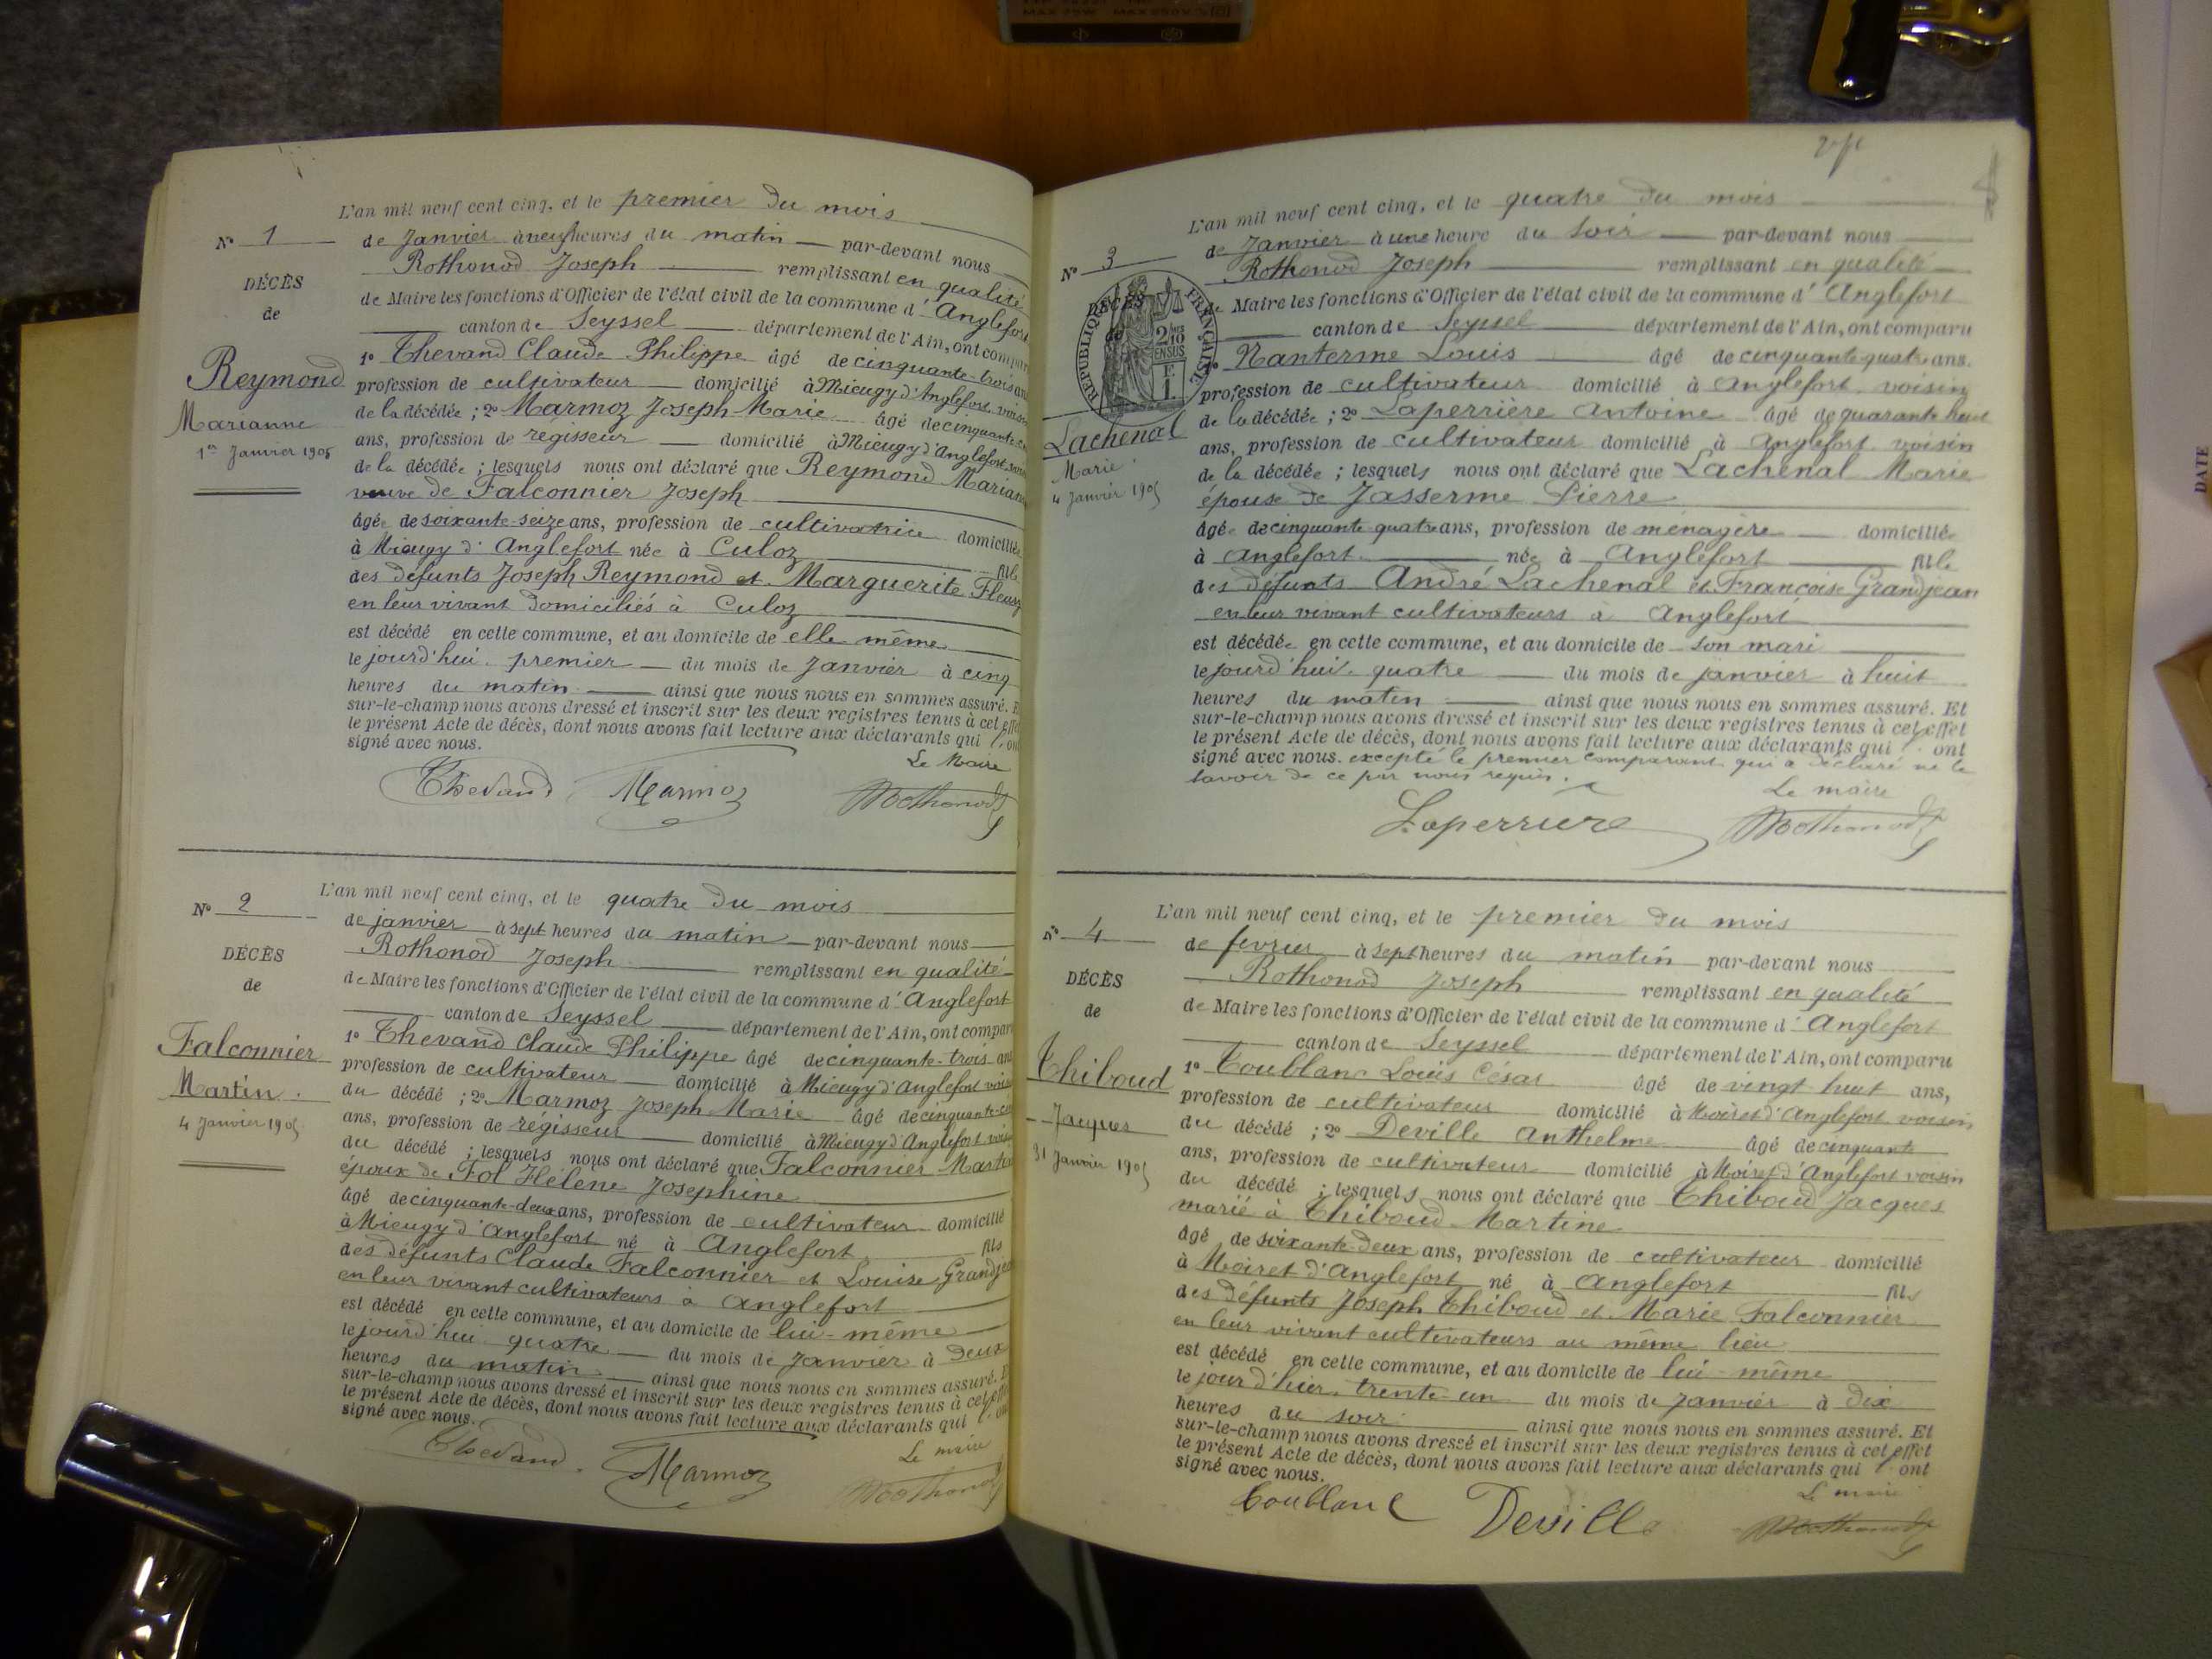 N° 1
DÉCÈS
de
Reymond
Marianne
1er Janvier 1905
L'an mil neuf cent cinq, et le premier du mois
de Janvier à neuf heures du matin par-devant nous
Rothonod Joseph remplissant en qualité
de Maire les fonctions d'Officier de l'état civil de la commune d'Anglefort
canton de Seyssel département de l'Ain, ont compar
1° Thevand Claude Philippe âgé de cinquante-trois an
profession de cultivateur domicilié à Mieugy d'Anglefort voisin
de la décédée ; 2° Marmoz Joseph Marie âgé de cinquante-c
ans, profession de régisseur domicilié à Mieugy d'Anglefort vois
de la décédée ; lesquels nous ont déclaré que Reymond Marian
veuve de Falconnier Joseph
âgée de soixante-seize ans, profession de cultivatrice domiciliée
à Mieugy d'Anglefort née à Culoz fille
des défunts Joseph Reymond et Marguerite Fleury
en leur vivant domiciliés à Culoz
est décédé en cette commune, et au domicile de elle même
le jourd'hui premier du mois de Janvier à cinq
heures du matin ainsi que nous nous en sommes assuré. E
sur-le-champ nous avons dressé et inscrit sur les deux registres tenus à cet effet
le présent Acte de décès, dont nous avons fait lecture aux déclarants qui l'ont
signé avec nous.
Le Maire
Thevand Marmoz Rothonod
N° 2
DÉCÈS
de
Falconnier
Martin.
4 Janvier 1905
L'an mil neuf cent cinq, et le quatre du mois
de janvier à sept heures du matin par-devant nous
Rothonod Joseph remplissant en qualité
de Maire les fonctions d'Officier de l'état civil de la commune d'Anglefort
canton de Seyssel département de l'Ain, ont compar
1° Thevand Claude Philippe âgé de cinquante-trois ans
profession de cultivateur domicilié à Mieugy d'Anglefort vois
du décédé ; 2° Marmoz Joseph Marie âgé de cinquante-ci
ans, profession de régisseur domicilié à Mieugy d'Anglefort vois
du décédé ; lesquels nous ont déclaré que Falconnier Marti
époux de Fol Hélène Josephine
âgé de cinquante-deux ans, profession de cultivateur domicilié
à Mieugy d'Anglefort né à Anglefort fils
des défunts Claude Falconnier et Louise Grandjea
en leur vivant cultivateurs à Anglefort
est décédé en cette commune, et au domicile de lui-même
le jourd'hui quatre du mois de Janvier à deux
heures du matin ainsi que nous nous en sommes assuré. E
sur-le-champ nous avons dressé et inscrit sur les deux registres tenus à cet effet
le présent Acte de décès, dont nous avons fait lecture aux déclarants qui l'ont
signé avec nous.
Le maire
Thevand. Marmoz Rothonod
N° 3
DÉCÈS
de
RÉPUBLIQUE FRANÇAISE
Lachenal
Marie
4 Janvier 1905
L'an mil neuf cent cinq, et le quatre du mois
de Janvier à une heure du soir par-devant nous
Rothonod Joseph remplissant en qualité
de Maire les fonctions d'Officier de l'état civil de la commune d'Anglefort
canton de Seyssel département de l'Ain, ont comparu
1° Nanterme Louis âgé de cinquante quatre ans.
profession de cultivateur domicilié à Anglefort voisin
de la décédée ; 2° Laperrière Antoine âgé de quarante huit
ans, profession de cultivateur domicilié à Anglefort voisin
de la décédée ; lesquels nous ont déclaré que Lachenal Marie
épouse de Jasserme Pierre
âgée de cinquante quatre ans, profession de ménagère domiciliée
à Anglefort née à Anglefort fille
des défunts André Lachenal et Françoise Grandjean
en leur vivant cultivateurs à Anglefort
est décédée en cette commune, et au domicile de son mari
le jourd'hui quatre du mois de janvier à huit
heures du matin ainsi que nous nous en sommes assuré. Et
sur-le-champ nous avons dressé et inscrit sur les deux registres tenus à cet effet
le présent Acte de décès, dont nous avons fait lecture aux déclarants qui l'ont
signé avec nous. excepté le premier comparant qui a déclaré ne le
savoir de ce par nous requis.
Le maire
Laperrière Rothonod
N° 4
DÉCÈS
de
Thiboud
Jacques
31 Janvier 1905
L'an mil neuf cent cinq, et le premier du mois
de fevrier à sept heures du matin par-devant nous
Rothonod Joseph remplissant en qualité
de Maire les fonctions d'Officier de l'état civil de la commune d'Anglefort
canton de Seyssel département de l'Ain, ont comparu
1° Coublanc Louis César âgé de vingt huit ans,
profession de cultivateur domicilié à Moiret d'Anglefort voisin
du décédé ; 2° Deville Anthelme âgé de cinquante
ans, profession de cultivateur domicilié à Moiret d'Anglefort voisin
du décédé ; lesquels nous ont déclaré que Thiboud Jacques
marié à Thiboud Martine
âgé de soixante-deux ans, profession de cultivateur domicilié
à Moiret d'Anglefort né à Anglefort fils
des défunts Joseph Thiboud et Marie Falconnier
en leur vivant cultivateurs au même lieu
est décédé en cette commune, et au domicile de lui-même
le jour d'hier trente-un du mois de Janvier à dix
heures du soir ainsi que nous nous en sommes assuré. Et
sur-le-champ nous avons dressé et inscrit sur les deux registres tenus à cet effet
le présent Acte de décès, dont nous avons fait lecture aux déclarants qui l'ont
signé avec nous.
Le maire
Coublanc Deville Rothonod
DATE